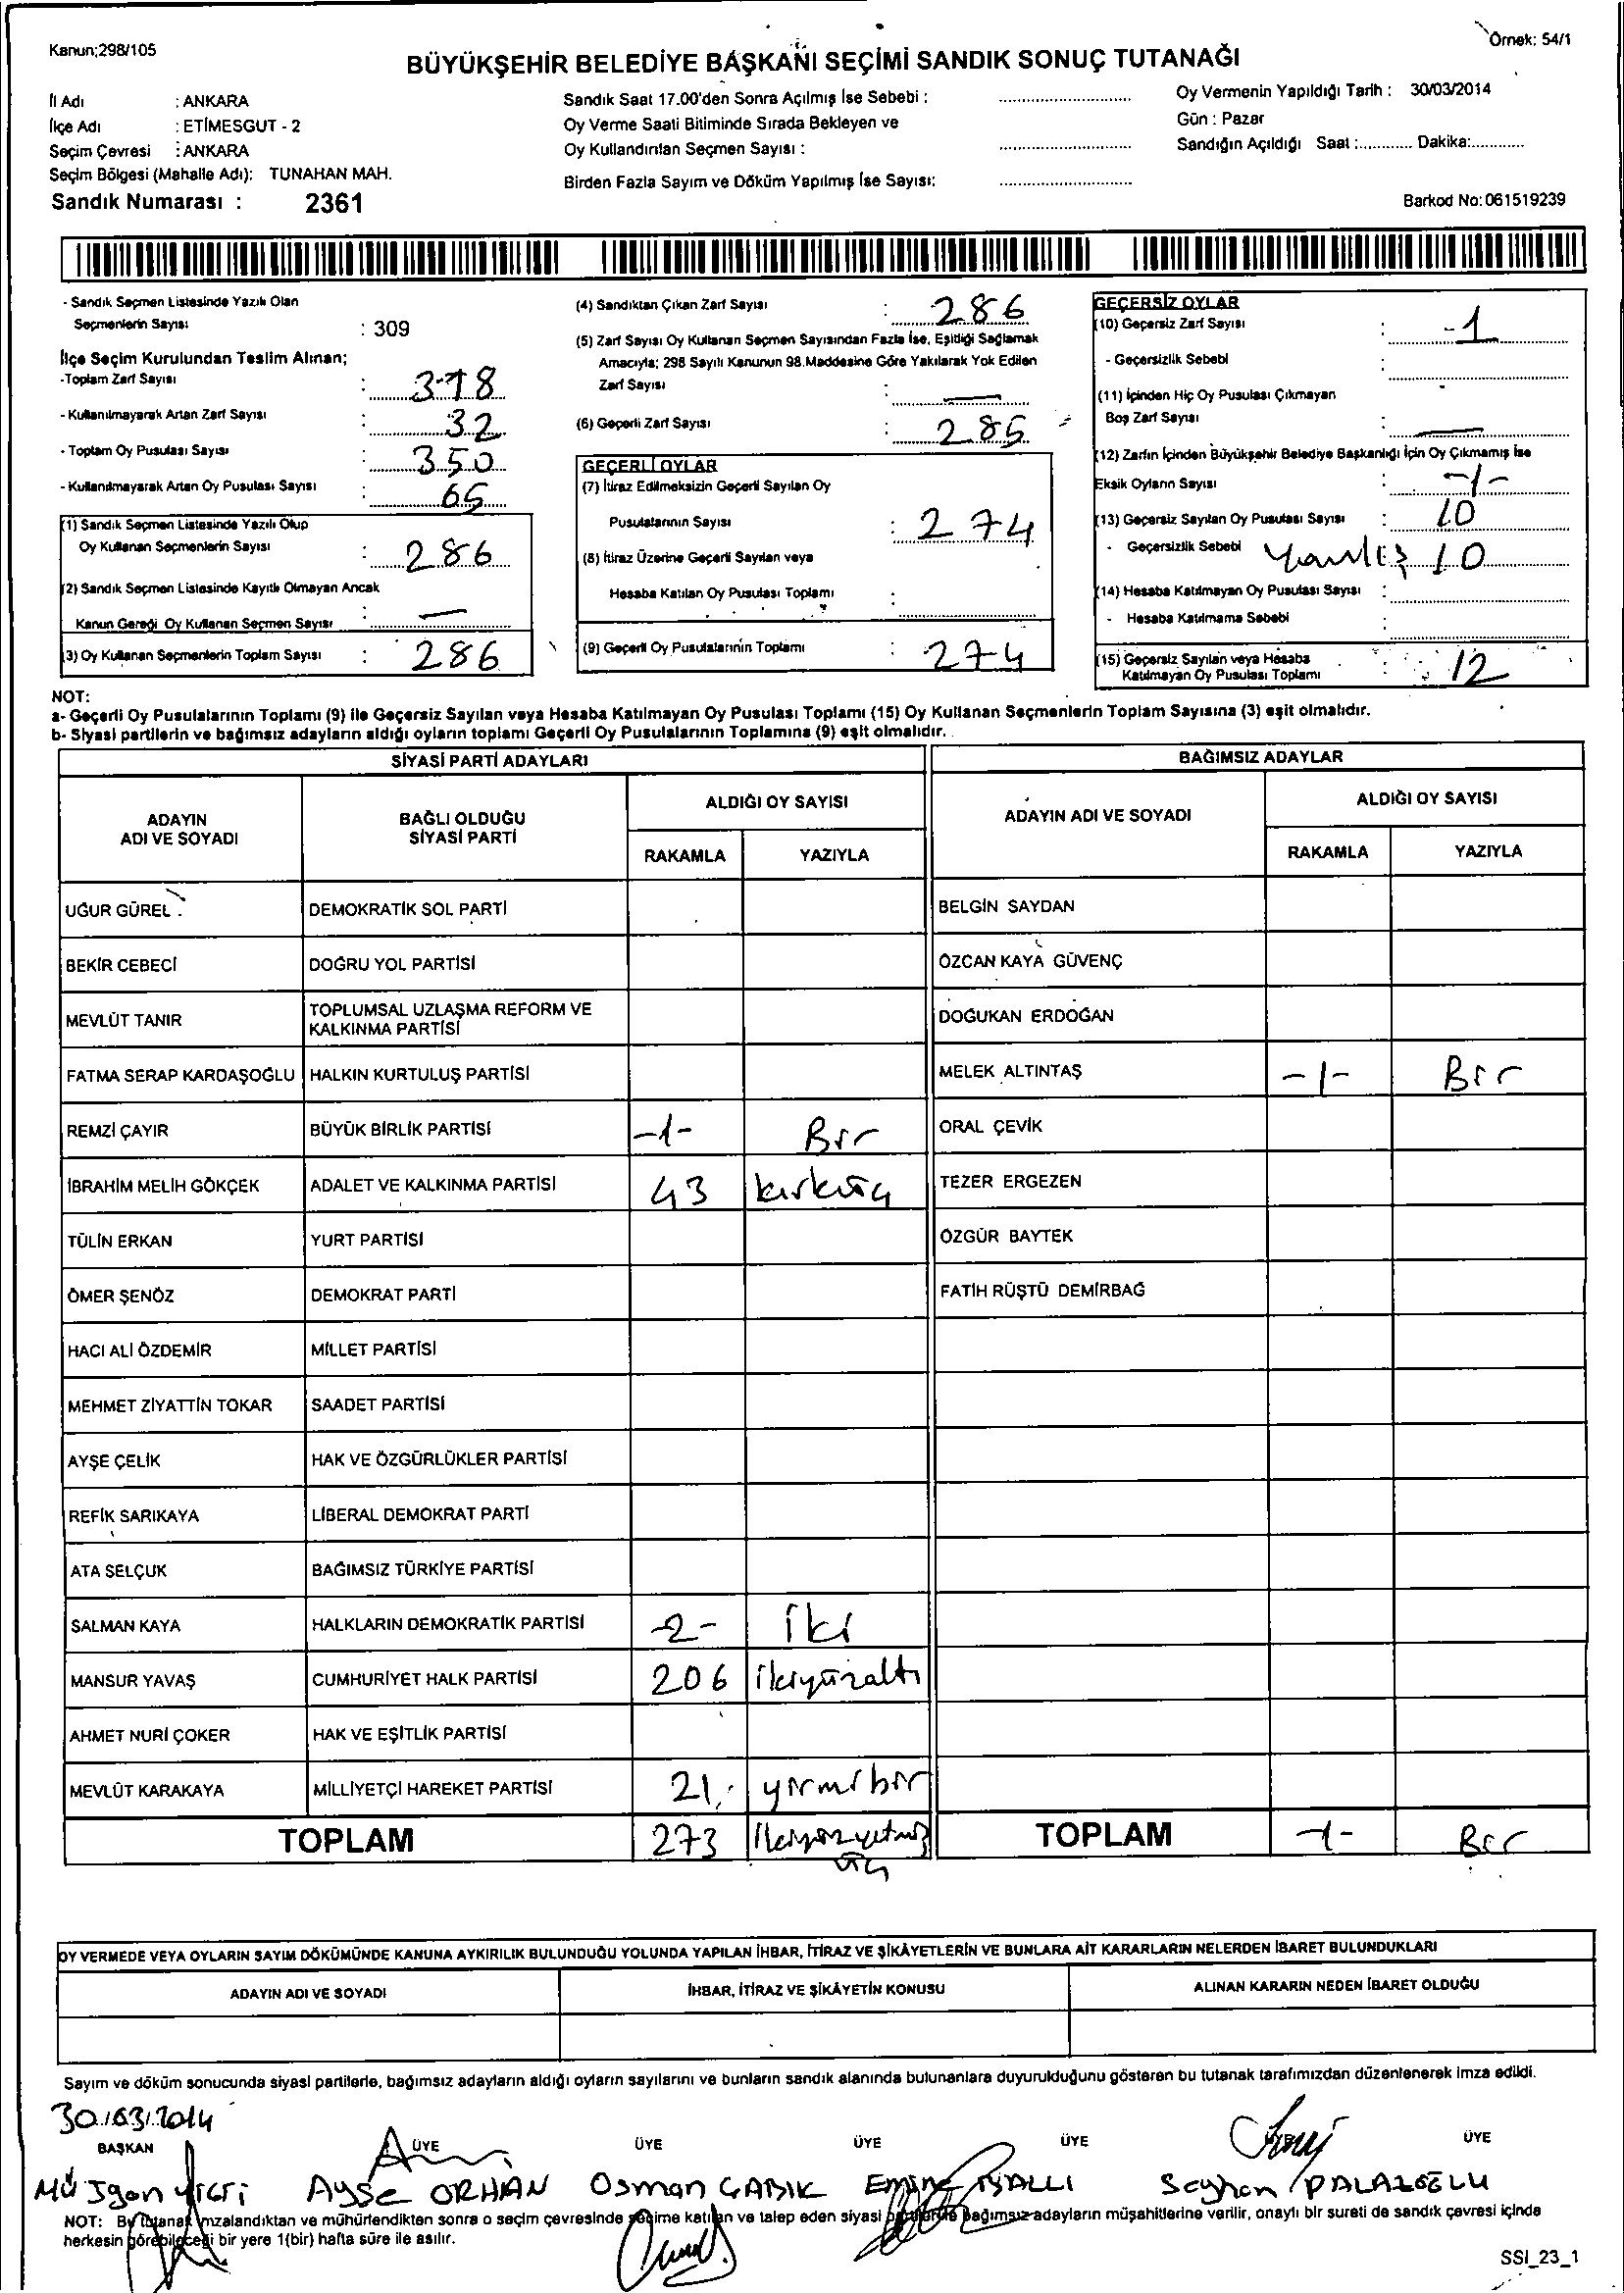 Kanun;298/105
Örnek: 54/1
BÜYÜKŞEHİR BELEDİYE BAŞKANI SEÇİMİ SANDIK SONUÇ TUTANAĞI
İl Adı : ANKARA
İlçe Adı : ETİMESGUT - 2
Seçim Çevresi : ANKARA
Seçim Bölgesi (Mahalle Adı): TUNAHAN MAH.
Sandık Numarası : 2361
Sandık Saat 17.00'den Sonra Açılmış İse Sebebi :
Oy Verme Saati Bitiminde Sırada Bekleyen ve
Oy Kullandırılan Seçmen Sayısı :
Birden Fazla Sayım ve Döküm Yapılmış İse Sayısı:
Oy Vermenin Yapıldığı Tarih : 30/03/2014
Gün : Pazar
Sandığın Açıldığı Saat :............ Dakika:............
Barkod No: 061519239
- Sandık Seçmen Listesinde Yazılı Olan
Seçmenlerin Sayısı : 309
İlçe Seçim Kurulundan Teslim Alınan;
-Toplam Zarf Sayısı : 318
- Kullanılmayarak Artan Zarf Sayısı : 32
- Toplam Oy Pusulası Sayısı : 350
- Kullanılmayarak Artan Oy Pusulası Sayısı : 65
(1) Sandık Seçmen Listesinde Yazılı Olup
Oy Kullanan Seçmenlerin Sayısı : 286
(2) Sandık Seçmen Listesinde Kayıtlı Olmayan Ancak
Kanun Gereği Oy Kullanan Seçmen Sayısı : —
(3) Oy Kullanan Seçmenlerin Toplam Sayısı : 286
(4) Sandıktan Çıkan Zarf Sayısı : 286
(5) Zarf Sayısı Oy Kullanan Seçmen Sayısından Fazla İse, Eşitliği Sağlamak
Amacıyla; 298 Sayılı Kanunun 98.Maddesine Göre Yakılarak Yok Edilen
Zarf Sayısı : —
(6) Geçerli Zarf Sayısı : 285
GEÇERLİ OYLAR
(7) İtiraz Edilmeksizin Geçerli Sayılan Oy
Pusulalarının Sayısı : 274
(8) İtiraz Üzerine Geçerli Sayılan veya
Hesaba Katılan Oy Pusulası Toplamı :
(9) Geçerli Oy Pusulalarının Toplamı : 274
GEÇERSİZ OYLAR
(10) Geçersiz Zarf Sayısı : -1
- Geçersizlik Sebebi :
(11) İçinden Hiç Oy Pusulası Çıkmayan
Boş Zarf Sayısı : —
(12) Zarfın İçinden Büyükşehir Belediye Başkanlığı İçin Oy Çıkmamış İse
Eksik Oyların Sayısı : -1-
(13) Geçersiz Sayılan Oy Pusulası Sayısı : 10
- Geçersizlik Sebebi Yanlış 10
(14) Hesaba Katılmayan Oy Pusulası Sayısı :
- Hesaba Katılmama Sebebi :
(15) Geçersiz Sayılan veya Hesaba
Katılmayan Oy Pusulası Toplamı : 12
NOT:
a- Geçerli Oy Pusulalarının Toplamı (9) ile Geçersiz Sayılan veya Hesaba Katılmayan Oy Pusulası Toplamı (15) Oy Kullanan Seçmenlerin Toplam Sayısına (3) eşit olmalıdır.
b- Siyasi partilerin ve bağımsız adayların aldığı oyların toplamı Geçerli Oy Pusulalarının Toplamına (9) eşit olmalıdır.
SİYASİ PARTİ ADAYLARI
BAĞIMSIZ ADAYLAR
ADAYIN
ADI VE SOYADI
BAĞLI OLDUĞU
SİYASİ PARTİ
ALDIĞI OY SAYISI
RAKAMLA YAZIYLA
ADAYIN ADI VE SOYADI
ALDIĞI OY SAYISI
RAKAMLA YAZIYLA
UĞUR GÜREL DEMOKRATİK SOL PARTİ BELGİN SAYDAN
BEKİR CEBECİ DOĞRU YOL PARTİSİ ÖZCAN KAYA GÜVENÇ
MEVLÜT TANIR TOPLUMSAL UZLAŞMA REFORM VE
KALKINMA PARTİSİ DOĞUKAN ERDOĞAN
FATMA SERAP KARDAŞOĞLU HALKIN KURTULUŞ PARTİSİ MELEK ALTINTAŞ -1- Bir
REMZİ ÇAYIR BÜYÜK BİRLİK PARTİSİ -1- Bir ORAL ÇEVİK
İBRAHİM MELİH GÖKÇEK ADALET VE KALKINMA PARTİSİ 43 kırküç TEZER ERGEZEN
TÜLİN ERKAN YURT PARTİSİ ÖZGÜR BAYTEK
ÖMER ŞENÖZ DEMOKRAT PARTİ FATİH RÜŞTÜ DEMİRBAĞ
HACI ALİ ÖZDEMİR MİLLET PARTİSİ
MEHMET ZİYATTİN TOKAR SAADET PARTİSİ
AYŞE ÇELİK HAK VE ÖZGÜRLÜKLER PARTİSİ
REFİK SARIKAYA LİBERAL DEMOKRAT PARTİ
ATA SELÇUK BAĞIMSIZ TÜRKİYE PARTİSİ
SALMAN KAYA HALKLARIN DEMOKRATİK PARTİSİ -2- İki
MANSUR YAVAŞ CUMHURİYET HALK PARTİSİ 206 ikiyüzaltı
AHMET NURİ ÇOKER HAK VE EŞİTLİK PARTİSİ
MEVLÜT KARAKAYA MİLLİYETÇİ HAREKET PARTİSİ 21 yirmibir
TOPLAM 273 İkiyüzyetmiş
üç
TOPLAM -1- Bir
OY VERMEDE VEYA OYLARIN SAYIM DÖKÜMÜNDE KANUNA AYKIRILIK BULUNDUĞU YOLUNDA YAPILAN İHBAR, İTİRAZ VE ŞİKÂYETLERİN VE BUNLARA AİT KARARLARIN NELERDEN İBARET BULUNDUKLARI
ADAYIN ADI VE SOYADI İHBAR, İTİRAZ VE ŞİKÂYETİN KONUSU ALINAN KARARIN NEDEN İBARET OLDUĞU
Sayım ve döküm sonucunda siyasi partilerle, bağımsız adayların aldığı oyların sayılarını ve bunların sandık alanında bulunanlara duyurulduğunu gösteren bu tutanak tarafımızdan düzenlenerek imza edildi.
30/03/2014
BAŞKAN ÜYE ÜYE ÜYE ÜYE ÜYE ÜYE
Müjgan Ayşe ORHAN Osman Emine Seyhan PALAZOĞLU
NOT: Bu tutanak imzalandıktan ve mühürlendikten sonra o seçim çevresinde seçime katılan ve talep eden siyasi partilerle bağımsız adayların müşahitlerine verilir, onaylı bir sureti de sandık çevresi içinde
herkesin görebileceği bir yere 1(bir) hafta süre ile asılır.
SSI_23_1